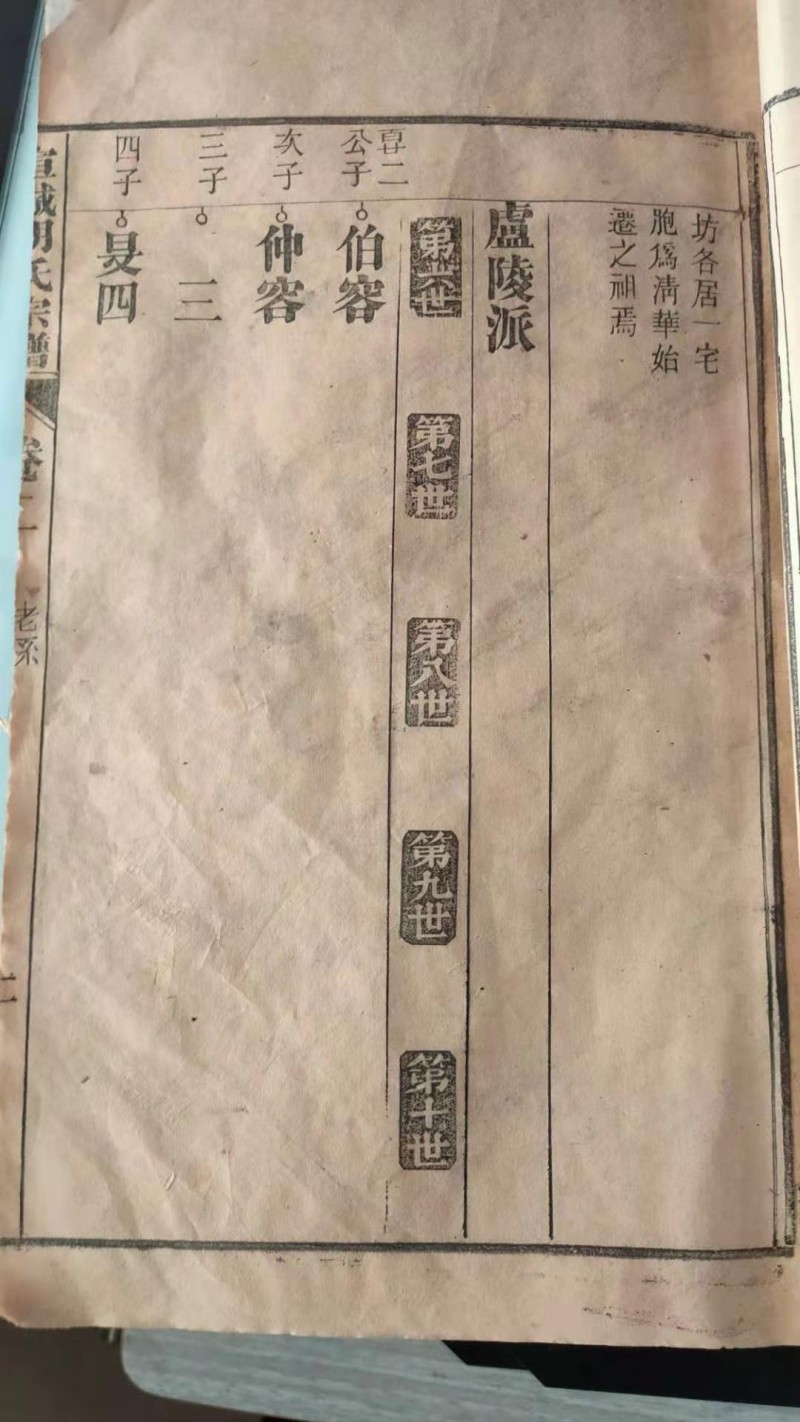 坊各居一宅
胞爲清華始
遷之祖焉
盧陵派
第六世
第七世
第八世
第九世
第十世
二
公子
伯容
次子
仲容
三子
三
四子
旻四
宣城胡氏宗譜
卷二
老系
二